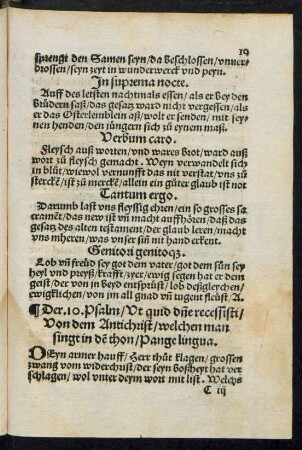 19
sprengt den Samen seyn/da beschlossen/vnuer-
drossen/seyn zeyt in wunderwerck vnd peyn.
In suprema nocte.
Auff des letsten nachtmals essen/als er bey den
brüdern saß/das gesatz ward nicht vergessen/als
er das Osterlemblein aß/wolt er senden/mit sey-
nen henden/den jüngern sich zu eynem maß.
Verbum caro.
Fleysch auß worten/vnd wares brot/ward auß
wort zu fleysch gemacht. Weyn verwandelt sich
in blüt/wiewol vernunfft das nit verstat/vns zu
stercke/ist zu mercke/allein ein guter glaub ist not
Tantum ergo.
Darumb last vns fleyssig ehren/ein so grosses sa-
crament/das new ist vn macht auffhören/daß das
gesatz des alten testament/der glaub leren/macht
vns mheren/was vnser sin nit hand erkent.
Genitori genitoqz.
Lob vn freüd sey got dem vater/got dem sün sey
heyl vnd preyß/krafft/zyer/ewig segen hat er dem
geist/der von in beyd entsprüst/lob deßgleychen/
ewigklichen/von jm all gnad vn tugent fleüst/A.
¶ Der .10. Psalm/Vt quid dne recessisti/
Von dem Antichrist/welchen man
singt in de thon/Pange lingua.
OEyn armer hauff/Herr thüt klagen/grossen
zwang vom widerchrist/der seyn boßheyt hat ver
schlagen/wol vnter deym wort mit list. Welchs
C iij